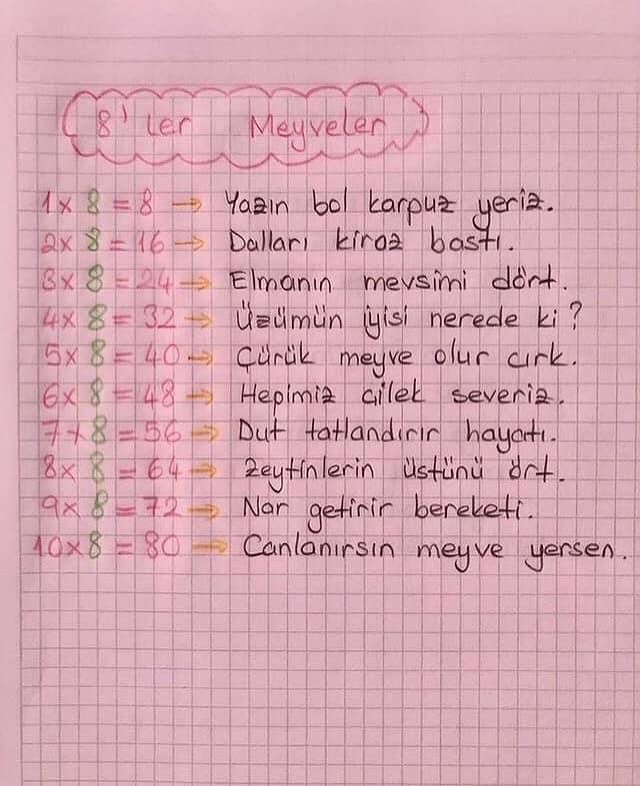 8'ler Meyveler
1x 8 = 8 → Yazın bol karpuz yeriz.
2x 8 = 16 → Dalları kiraz bastı.
3x 8 = 24 → Elmanın mevsimi dört.
4x 8 = 32 → Üzümün iyisi nerede ki?
5x 8 = 40 → Çürük meyve olur cırk.
6x 8 = 48 → Hepimiz çilek severiz.
7x8 = 56 → Dut tatlandırır hayatı.
8x 8 = 64 → Zeytinlerin üstünü ört.
9x 8 = 72 → Nar getirir bereketi.
10x8 = 80 → Canlanırsın meyve yersen.